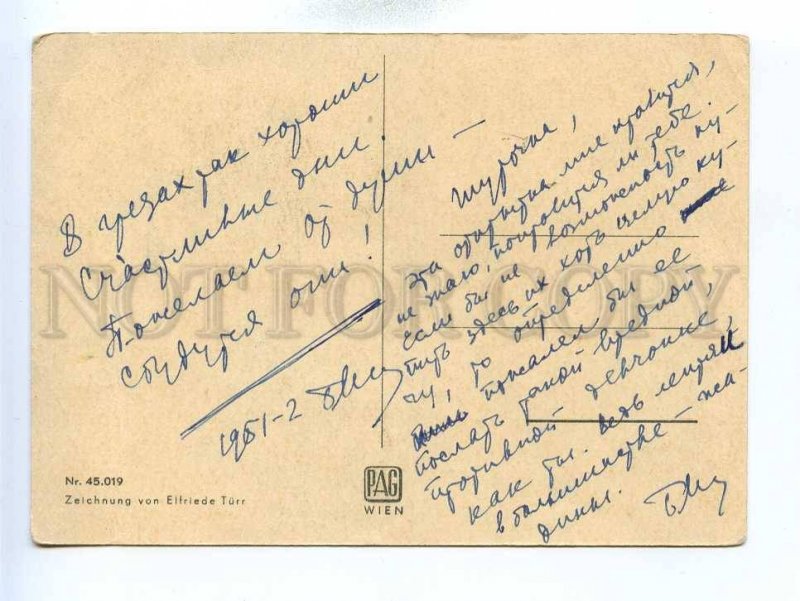 В грезах так хороши
Счастливые дни.
Пожелаем от души —
Сбудутся они!
1951-2
Шурочка,
эта открытка мне нравится,
не знаю, понравится ли тебе.
Если бы не возможность ку-
пить здесь их хоть целую ку-
чу, то определенно
пожалел бы ее
послать такой вредной,
противной девчонке,
как ты. Ведь лентяи
в большинстве — жа-
дины.
Nr. 45.019
Zeichnung von Elfriede Türr
PAG
WIEN
NOT FOR COPY